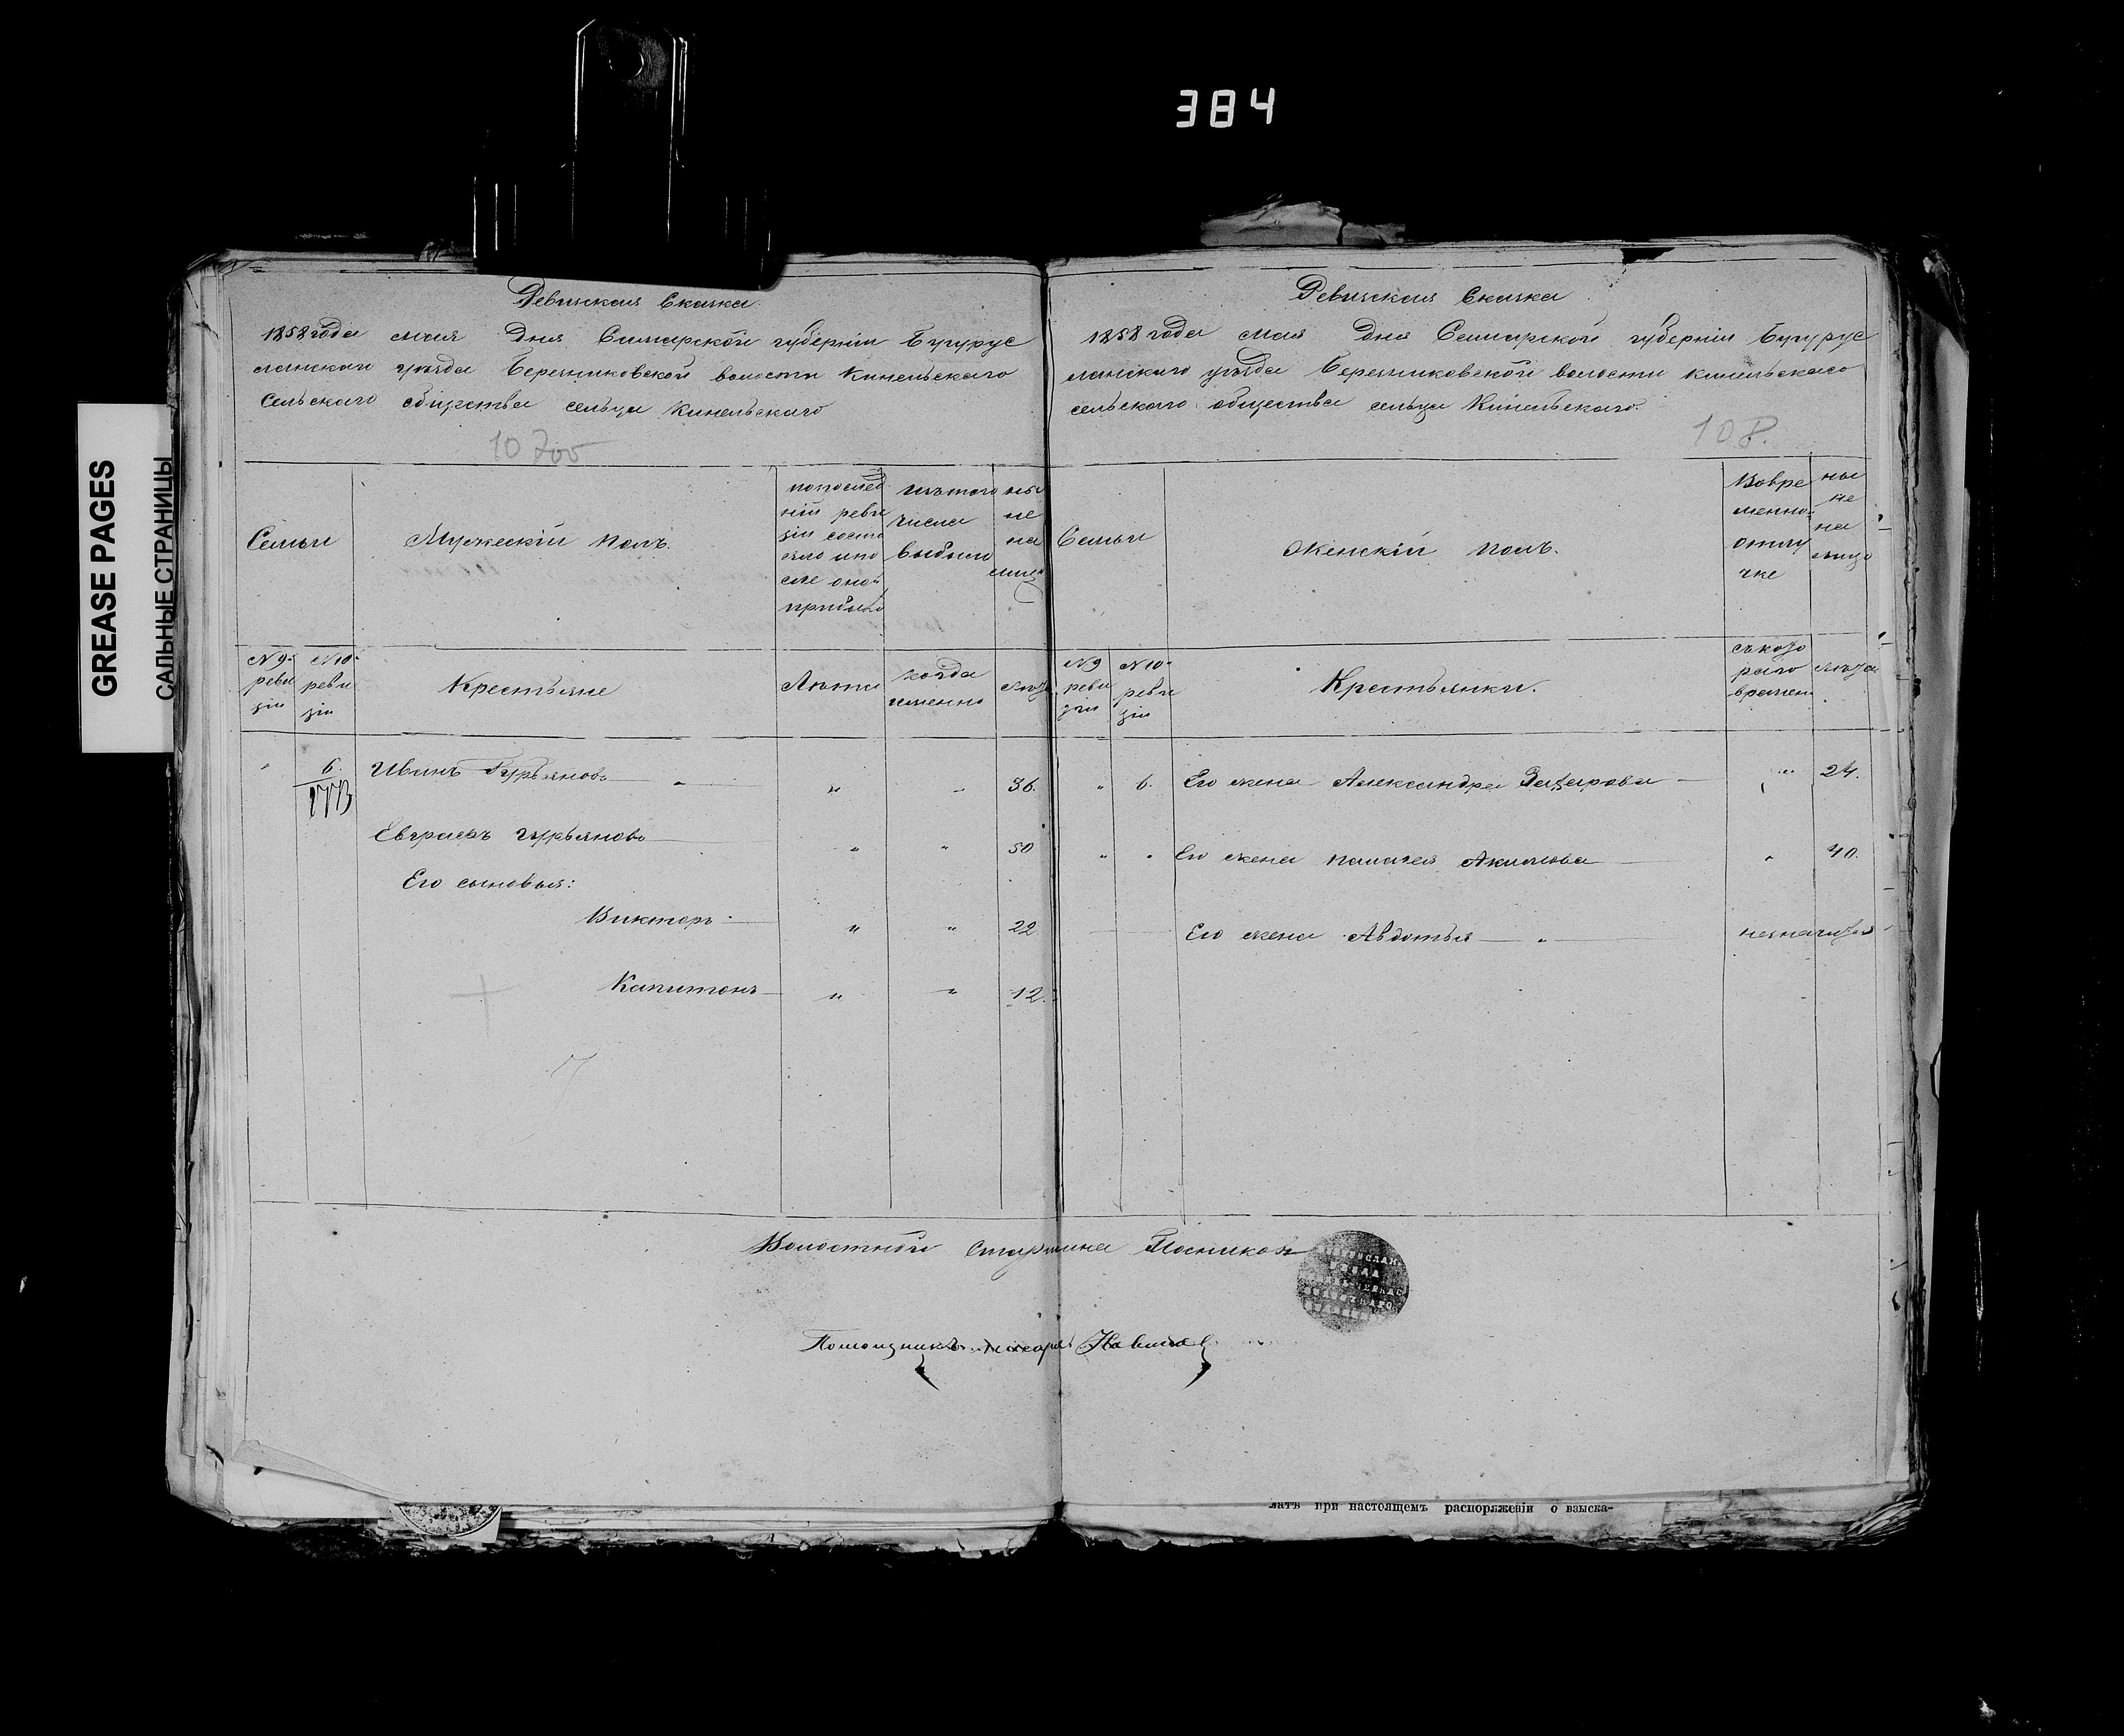 384
GREASE PAGES
САЛЬНЫЕ СТРАНИЦЫ
Ревизская Сказка
1858 года мая Дня Самарской губернии Бугурус
ланскаго уѣзда Березниковской волости Кинельскаго
Сельскаго общества сельца Кинельскаго
10
Семьи
Мужескій полъ.
по послед
ній реви
зіи состо
яло и по
сле оной
прибыло
изъ того
числа
выбыло
ны
не
на
лицо
№ 9й
реви
зіи
№ 10й
реви
зіи
Крестьяне
Лѣта
когда
именно
Лѣта
" 6. Иванъ Гурьяновъ " " " 36.
1773
Евграфъ Гурьяновъ " " 50
Его сыновья:
Викторъ " " 22
Капитонъ " " 12.
Ревизская Сказка
1858 года мая Дня Самарской губерніи Бугурус
ланскаго уѣзда Березниковской волости Кинельскаго
сельскаго общества сельца Кинельскаго.
108.
Семьи
Женскій полъ.
Вовре
менно
отлу
чке
ны
не
на
лицо
№ 9
реви
зіи
№ 10й
реви
зіи
Крестьянки.
съ кото
раго
времени
лѣта
" 6. Его жена Александра Захарова " 24.
" " Его жена Акимова " 40.
Его жена Авдотья " незначится
Волостной Старшина
Помощникъ писаря
латъ при настоящемъ распоряженіи о взыска-